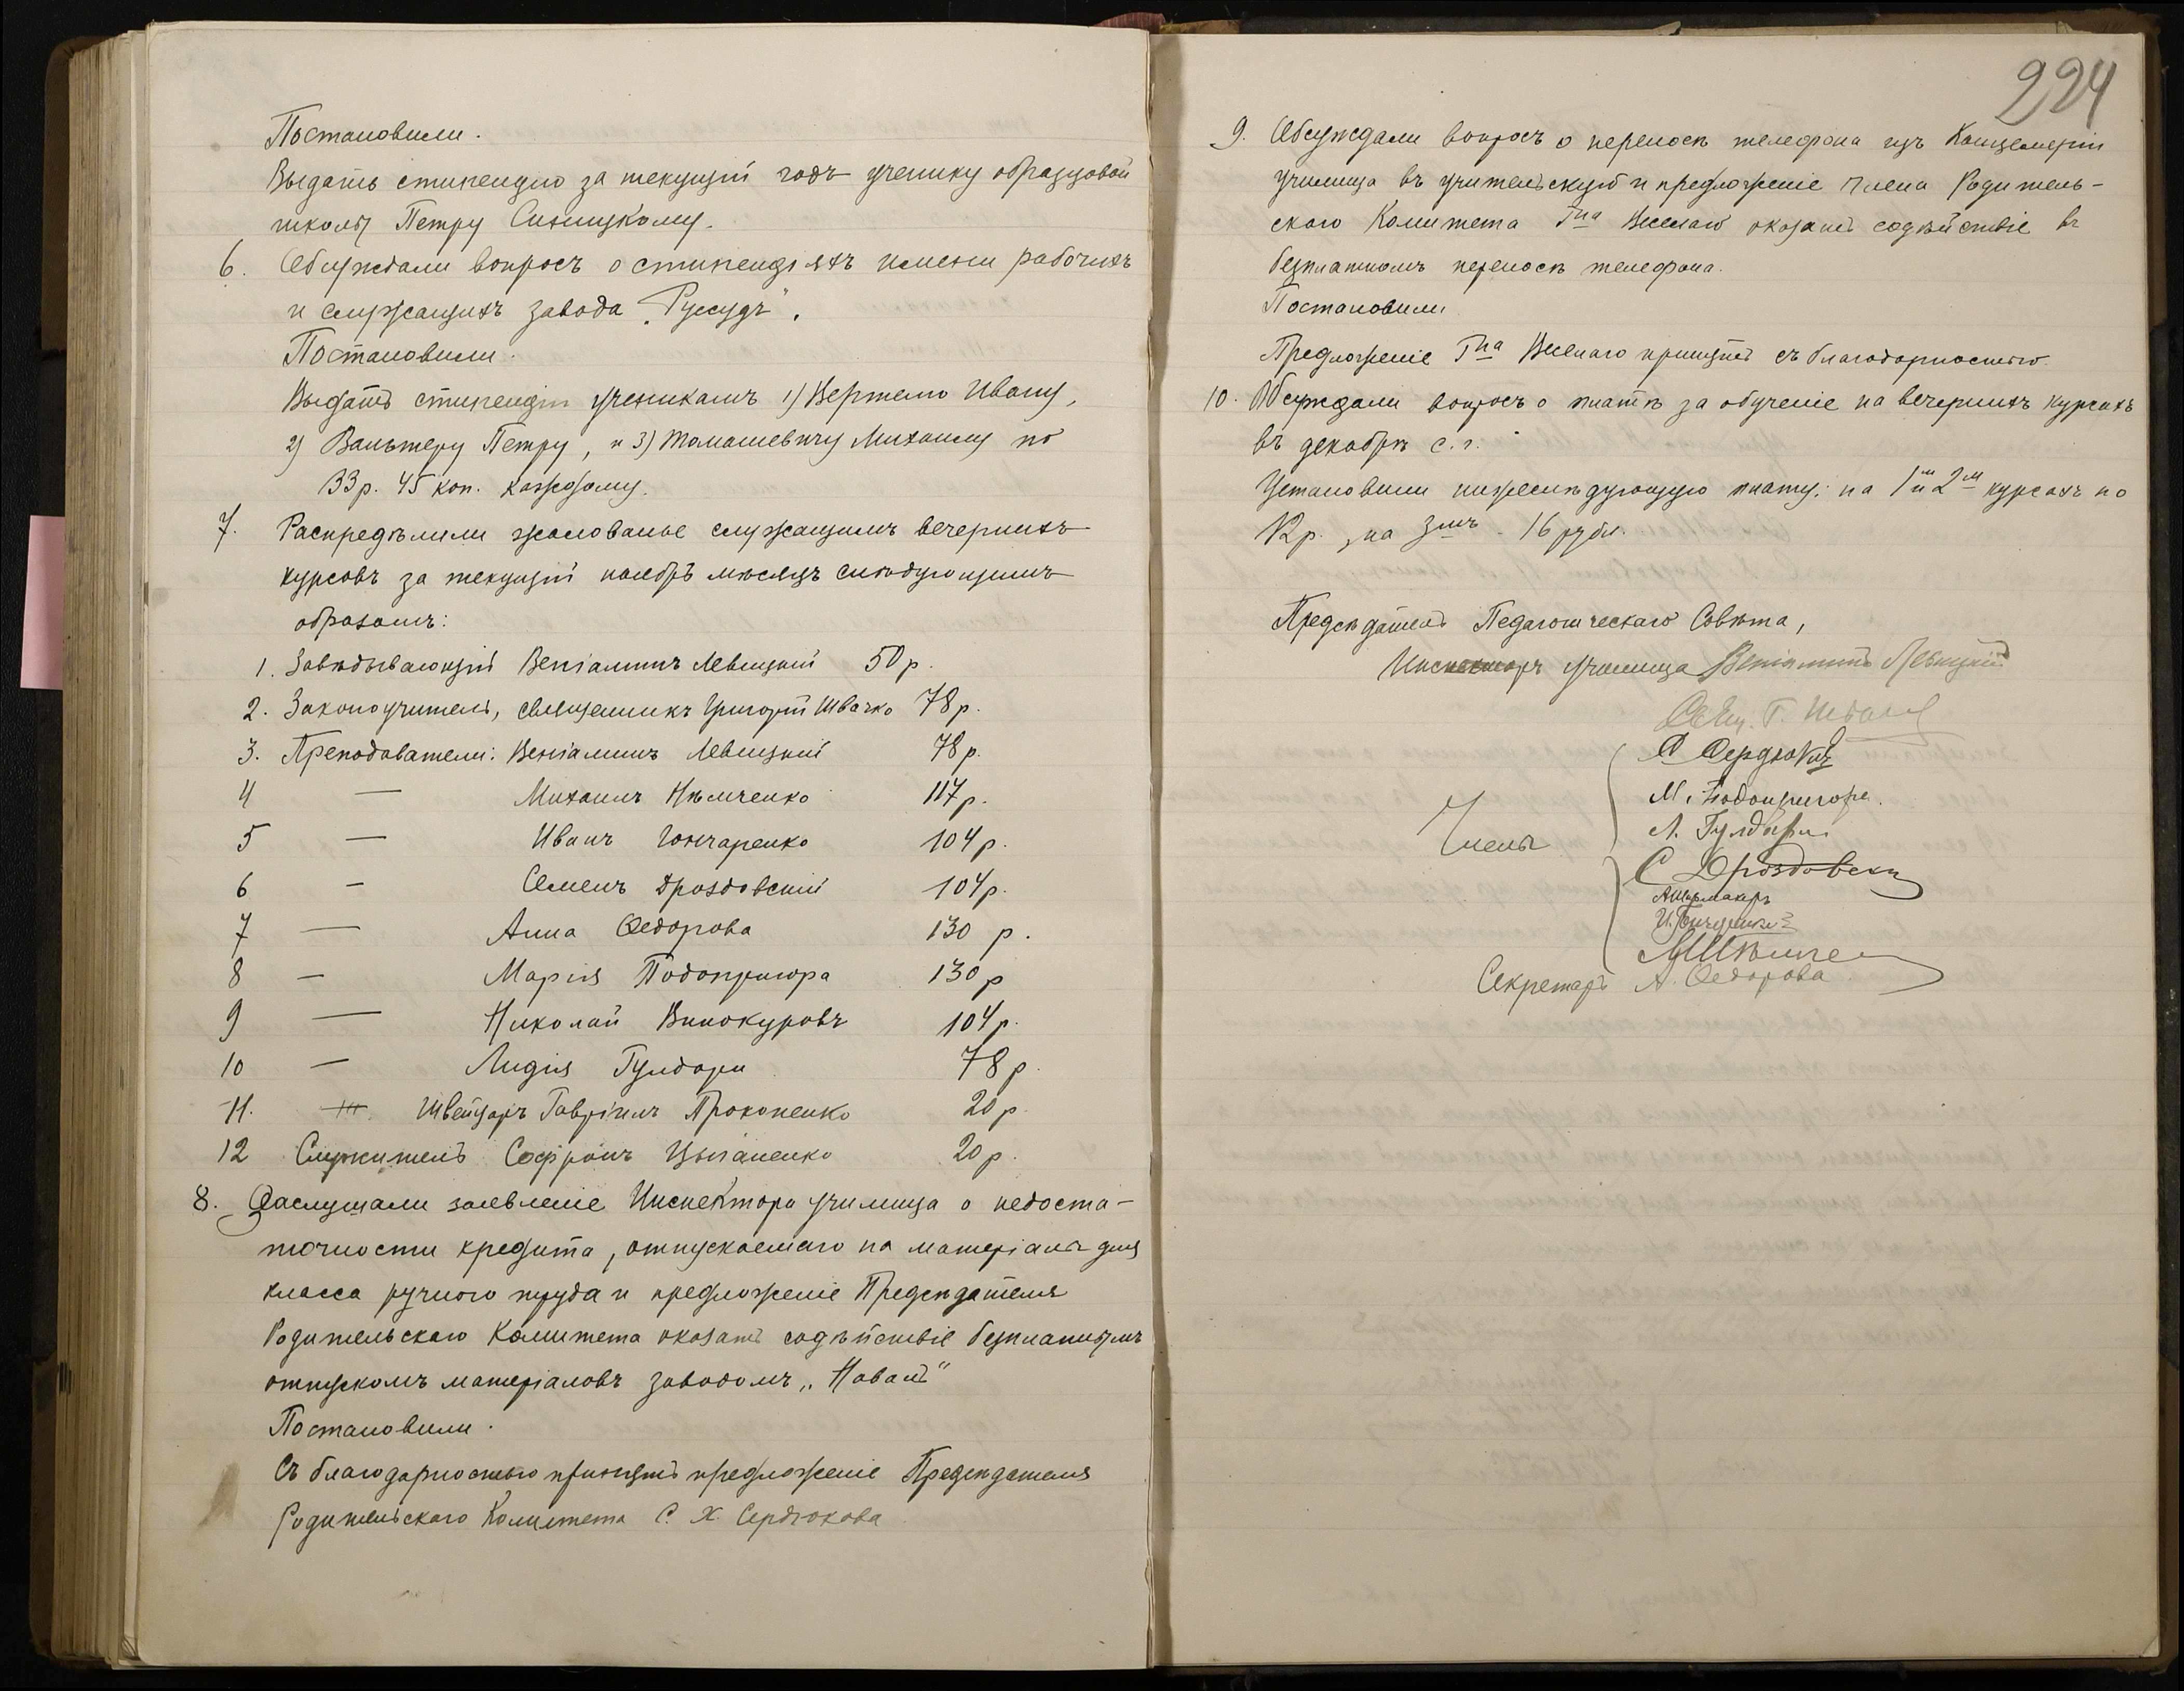 Постановили.
Выдать стипендію за текущій годъ ученику образцовой
школы Петру Синицкому.
6. Обсуждали вопросъ о стипендіяхъ имени рабочихъ
и служащихъ завода „Руссудъ".
Постановили.
Выдать стипендіи ученикамъ 1) Вертело Ивану,
2) Вальтеру Петру, и 3) Томашевичу Михаилу по
33 р. 45 коп. каждому.
7. Распредѣлили жалованье служащимъ вечернихъ
курсовъ за текущій ноябрь мѣсяцъ слѣдующимъ
образомъ:
1. Завѣдывающій Веніаминъ Левицкій 50 р.
2. Законоучитель, священникъ Григорій Швачко 78 р.
3. Преподаватели: Веніаминъ Левицкій 78 р.
4 — Михаилъ Нѣмченко 117 р.
5 — Иванъ Гончаренко 104 р.
6 — Семенъ Дроздовскій 104 р.
7 — Анна Ѳедорова 130 р.
8 — Марія Подопригора 130 р
9 — Николай Винокуровъ 104 р.
10 — Лидія Гулдари 78 р.
11. Швейцаръ Гавріилъ Прокопенко 20 р.
12 Служитель Софронъ Цыганенко 20 р.
8. Заслушали заявленіе Инспектора училища о недоста-
точности кредита, отпускаемаго на матеріалы для
класса ручного труда и предложеніе Предсѣдателя
Родительскаго Комитета оказать содѣйствіе безплатнымъ
отпускомъ матеріаловъ заводомъ „Наваль"
Постановили.
Съ благодарностью принять предложеніе Предсѣдателя
Родительскаго Комитета С. Х. Сердюкова
224
9. Обсуждали вопросъ о переноскѣ телефона изъ Канцеляріи
училища въ учительскую и предложеніе члена Родитель-
скаго Комитета Гна Веселаго оказать содѣйствіе въ
безплатномъ переноскѣ телефона.
Постановили
Предложеніе Гна Веселаго принять съ благодарностью.
10. Обсуждали вопросъ о платѣ за обученіе на вечернихъ курсахъ
въ декабрѣ с. г.
Установили нижеслѣдующую плату: на 1м и 2м курсахъ по
12 р., на 3мъ - 16 рубл.
Предсѣдатель Педагогическаго Совѣта,
Инспекторъ училища Веніаминъ Левицкій
Свящ. Г. Швачко
С Сердюковъ
М. Подопригора.
Члены
Л. Гулдари
С Дроздовскій
И. Гончаренко
Секретарь А. Ѳедорова